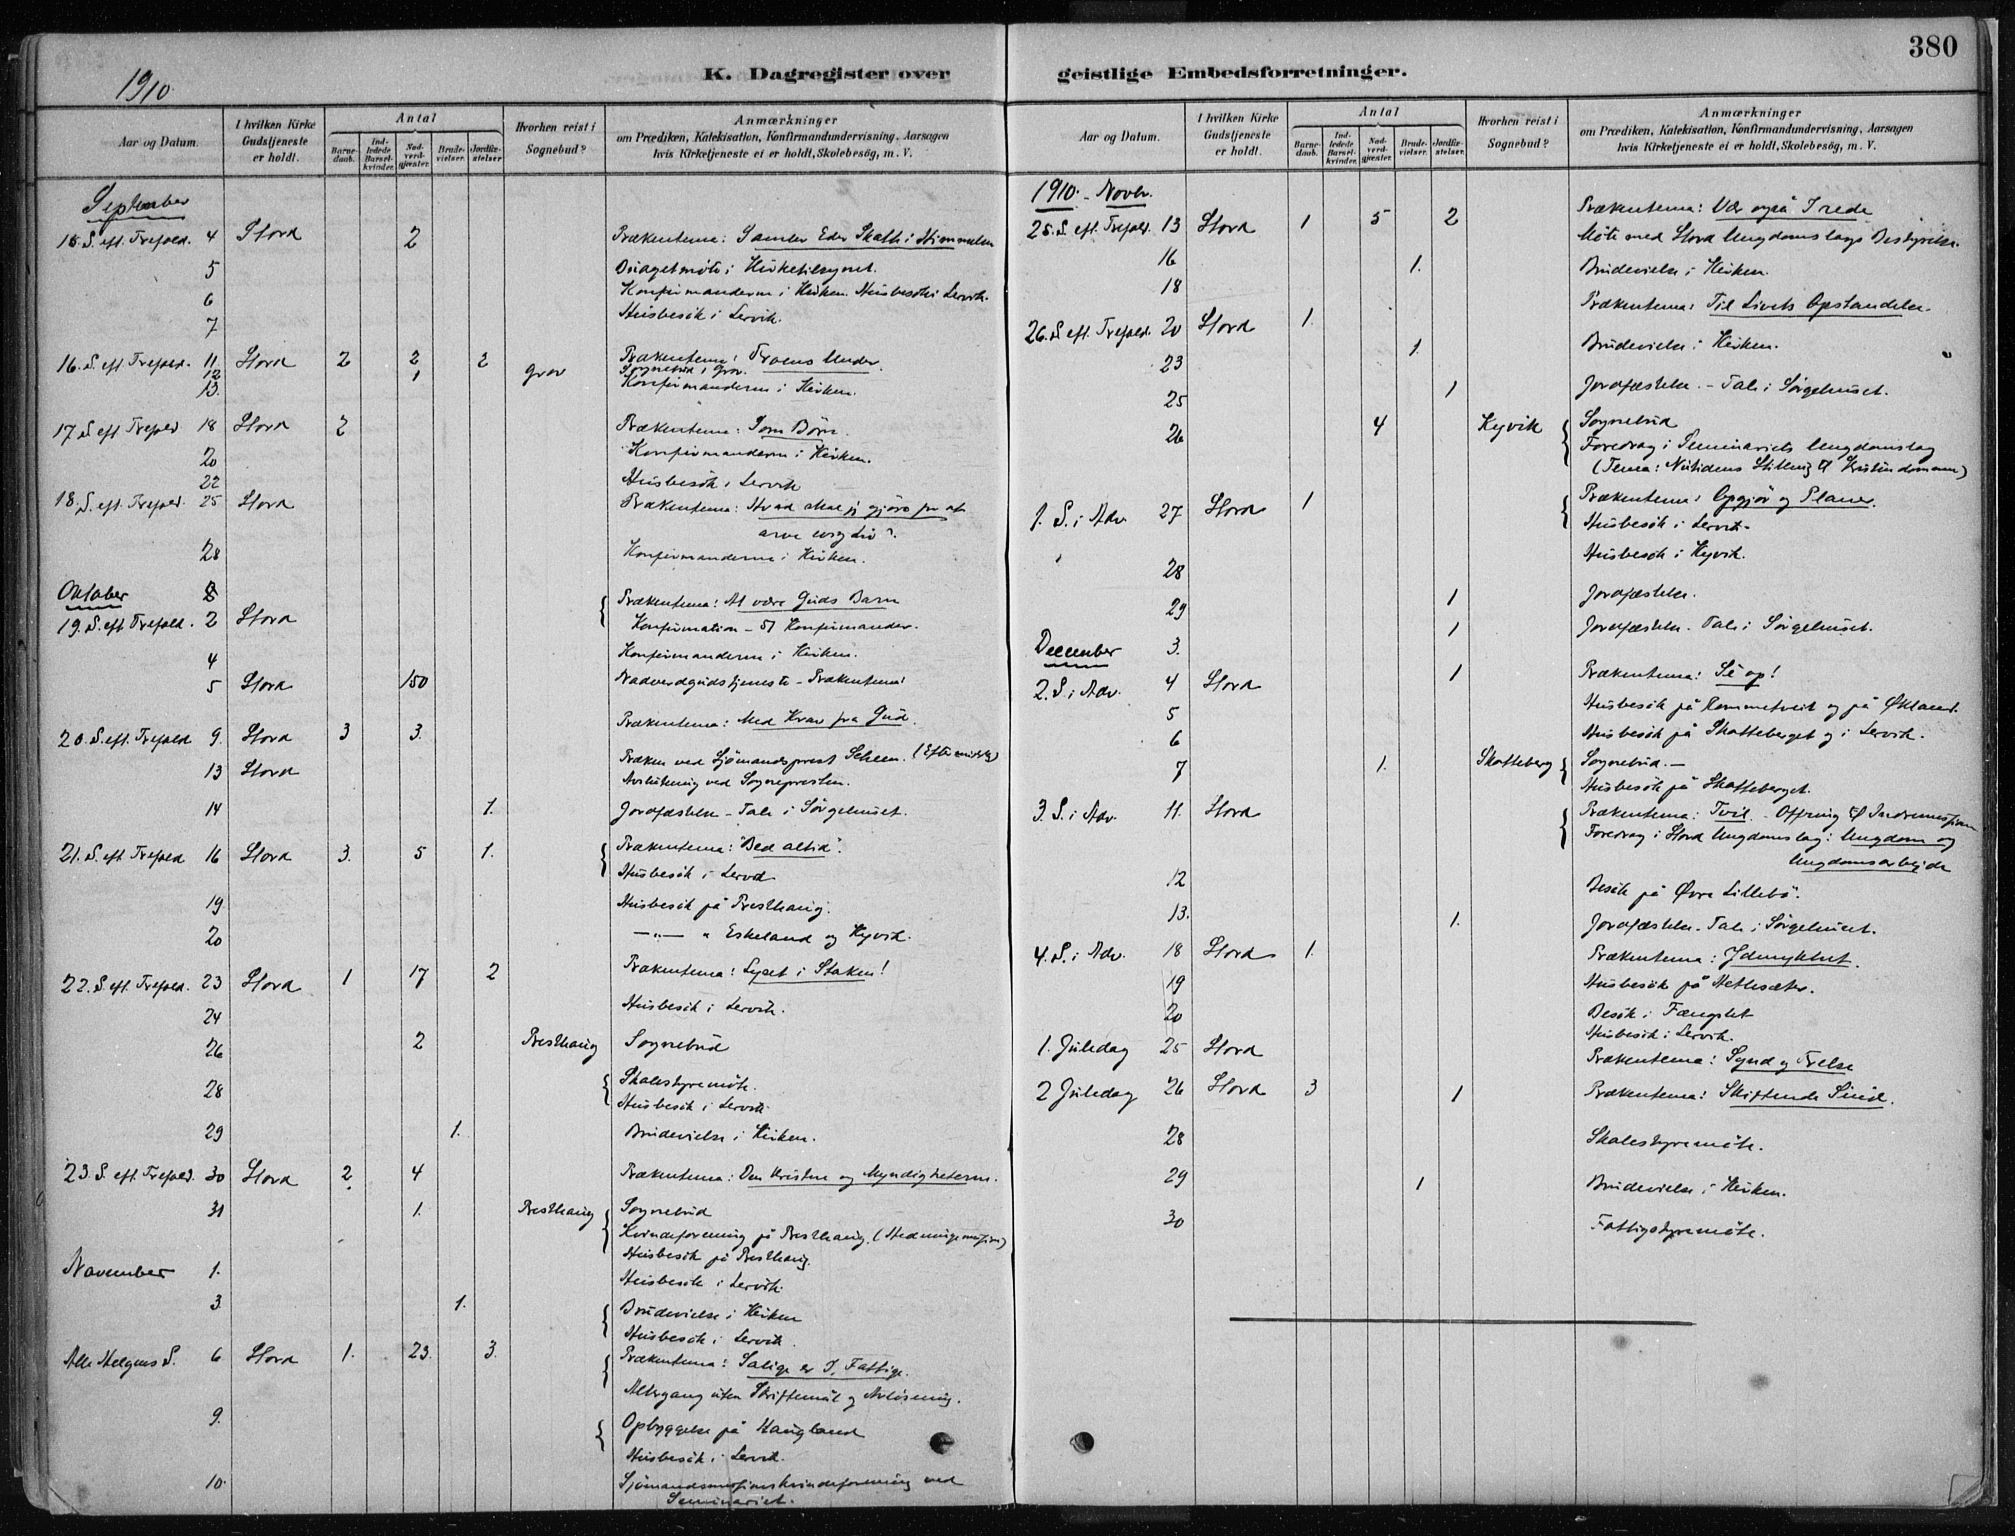 380
1910.
K. Dagregister over geistlige Embedsforretninger.
Aar og Datum.
I hvilken Kirke Gudstjeneste er holdt.
Antal
Barnedaab.
Indledede Barselkvinder.
Nadverdgjester.
Brudevielser.
Jordfæstelser.
Hvorhen reist i Sognebud?
Anmærkninger
om Prædiken, Katekisation, Konfirmandundervisning, Aarsagen
hvis Kirketjeneste ei er holdt, Skolebesøg, m. V.
September
15. S. eft. Trefold. 4 Stord 2 Prækentema: Samler Eder Skatte i Himmelen
5 Diagetmøte i Kirketilsynet.
6 Konfirmanderne i Kirken. Husbesök i Lervik.
7 Husbesök i Lervik.
16. S. eft. Trefold. 11 Stord 2 2 2 Prækentema: Troens Under.
12 1 Grov Sognebud i Grov.
13. Konfirmanderne i Kirken.
17. S. eft. Trefold 18 Stord 2 Prækentema: Som Børn.
20 Konfirmanderne i Kirken.
22 Husbesök i Lervik
18. S. eft. Trefold. 25 Stord Prækentema: Hvad skal jeg gjøre for at
arve evig Liv?
28 Konfirmanderne i Kirken.
Oktober
19. S. eft. Trefold. 2 Stord { Prækentema: At være Guds Barn
Konfirmation – 51 Konfirmander.
4 Konfirmanderne i Kirken.
5 Stord 150 Nadverdgudstjeneste – Prækentema:
20. S. eft. Trefold 9. Stord 3 3. Prækentema: Med Krav fra Gud.
13 Stord Præken ved Sjømandsprest Scheen. (Eftermiddag)
Avslutning ved Sognepresten.
14 1. Jordfæstelse – Tale i Sørgehuset.
21. S. eft. Trefold 16 Stord 3. 5 1. { Prækentema: "Bed altid".
Husbesök i Lervik
19 Husbesök på Presthaug.
20 –"– " Eskeland og Kyvik.
22. S. eft. Trefold. 23 Stord 1 17 2 Prækentema: Lyset i Staken!
24 Husbesök i Lervik.
26 2 Presthaug Sognebud
28 { Skolestyremöte.
Husbesök i Lervik
29 1. Brudevielse i Kirken.
23. S. eft. Trefold. 30 Stord 2 4 Prækentema: Den Kristne og Myndigheterne.
31 1. Presthaug { Sognebud
Kvindeforening på Presthaug. (Hedningemission)
Husbesök på Presthaug.
November 1. Husbesök i Lervik.
3. 1. { Brudevielse i Kirken
Husbesök i Lervik.
Alle Helgens S. 6 Stord 1. 23. 3. { Prækentema: Salige er I, Fattige.
Altergang uten Skriftemål og Avløsning.
9. { Opbyggelse på Haugland
Husbesök i Lervik.
10. Sjömandsmissionskvindeforening ved
Seminariet.
Aar og Datum.
I hvilken Kirke Gudstjeneste er holdt.
Antal
Barnedaab.
Indledede Barselkvinder.
Nadverdgjester.
Brudevielser.
Jordfæstelser.
Hvorhen reist i Sognebud?
Anmærkninger
om Prædiken, Katekisation, Konfirmandundervisning, Aarsagen
hvis Kirketjeneste ei er holdt, Skolebesøg, m. V.
1910. – Novbr.
25. S. eft. Trefold. 13 Stord 1 5 2 Prækentema: Vær også I rede
Möte med Stord Ungdomslags Bestyrelse.
16 1. Brudevielse i Kirken.
18
26. S. eft. Trefold. 20 Stord 1. Prækentema: Til Livets Opstandelse.
23 1. Brudevielse i Kirken.
25 1 Jordfæstelse. – Tale i Sørgehuset.
26 4 Kyvik { Sognebud
Foredrag i Seminariets Ungdomslag
(Tema: Nutidens Stilling til Kristendommen)
1. S. i Adv. 27 Stord 1 { Prækentema: Opgjör og Planer.
Husbesök i Lervik.
28 Husbesök i Kyvik.
29 1 Jordfæstelse.
December 3. 1 Jordfæstelse. Tale i Sørgehuset.
2. S. i Adv. 4 Stord 1 Prækentema: Se op!
5 Husbesök på Rommetveit og på Økland.
6 Husbesök på Skatteberget og i Lervik.
7 1. Skatteberg { Sognebud. –
Husbesök på Skatteberget.
3. S. i Adv. 11. Stord { Prækentema: Tvil. Offring til Indremission
Foredrag i Stord Ungdomslag: Ungdom og
Ungdomsarbejde
12 Besök på Øvre Lillebö.
13. 1. Jordfæstelse. Tale i Sørgehuset.
4. S. i Adv. 18 Stord 1. Prækentema: Ydmykhet.
19 Husbesök på Hetlesæter.
20 Besök i Fængslet
Husbesök i Lervik.
1. Juledag 25 Stord Prækentema: Synd og Frelse
2 Juledag 26 Stord 3 1 Prækentema: Skiftende Sind.
28 Skolestyremöte.
29 1 Brudevielse i Kirken.
30 Fattigstyremöte.